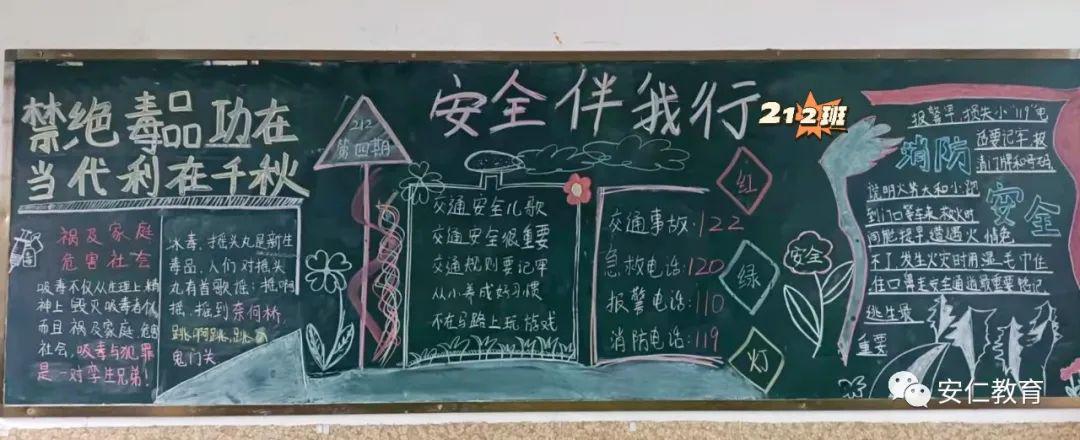 禁绝毒品 功在
当代利在千秋
祸及家庭
危害社会
吸毒不仅从生理上精
神上毁灭吸毒者
而且祸及家庭危害
社会,吸毒与犯罪
是一对孪生兄弟!
冰毒,摇头丸是新生
毒品,人们对摇头
丸有首歌摇:摇啊
摇,摇到奈何桥,
跳啊跳,跳
鬼门关
212
第四期
安全伴我行
212班
交通安全儿歌
交通安全很重要
交通规则要记牢
从小养成好习惯
不在马路上玩游戏
交通事故:122
急救电话:120
报警电话:110
消防电话:119
红
绿
灯
安全
消防
安全
报警早,损失小"119"电
还要记牢,报
清门牌和号码
说明火势大和小,迎
到门口等车来,救火时
间能提早,遭遇火情
不了,发生火灾时用湿毛巾住
住口鼻走安全通道最重要
逃生最
重要
安仁教育